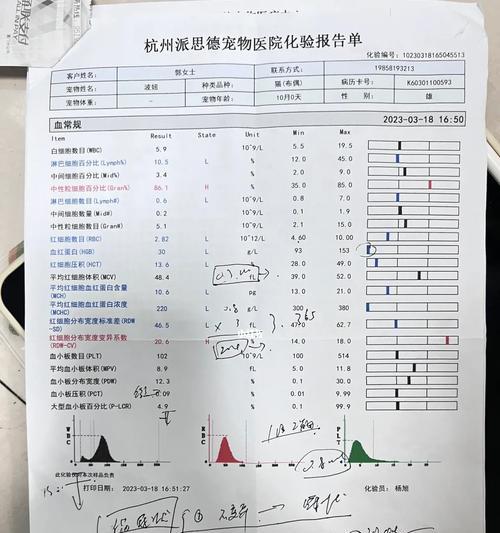 杭州派思德宠物医院化验报告单
化验编号：10230318165045513
客户姓名： 郭女士 联系方式： 19858193213
宠物姓名： 波妞 种类品种： 猫(布偶) 病历卡号： K60301100593
宠物体重： - 宠物年龄： 10月0天 性 别： 雄
血常规 2023-03-18 16:50
Item Result State Unit Min Max
白细胞数目(WBC) 5.9 10^9/L 5.5 19.5
淋巴细胞百分比(Lymph%) 10.5 L % 12.0 45.0
中间细胞百分比(Mid%) 3.4 % 2.0 9.0
中性粒细胞百分比(Gran%) 86.1 H % 35.0 85.0
淋巴细胞数目(Lymph#) 0.6 L 10^9/L 0.8 7.0
中间细胞数量(Mid#) 0.2 10^9/L 0.1 1.9
中性粒细胞百分比(Gran#) 5.1 10^9/L 2.1 15.0
红细胞数目(RBC) 2.82 L 10^12/L 4.60 10.00
血红蛋白(HGB) 30 L g/L 93 153
红细胞比积(HCT) 13.6 L % 28.0 49.0
平均红细胞体积(MCV) 48.4 fL 39.0 52.0
平均红细胞血红蛋白含量(MCH) 10.6 L pg 13.0 21.0
平均红细胞血红蛋白浓度(MCHC) 220 L g/L 300 380
红细胞分布宽度标准差(RDW-SD) 46.5 L fL 47.0 62.7
红细胞分布宽度变异系数(RDW-CV) 20.6 H % 14.0 18.0
血小板数目(PLT) 102 10^9/L 100 514
平均血小板体积(MPV) 8.9 fL 5.0 11.8
血小板分布宽度(PDW) 12.3 % 0.1 30.0
血小板压积(PCT) 0.09 % 0.01 9.99
大型血小板百分比(P-LCR) 4.9 % 0.1 99.9
WBC RBC PLT
此化验仅对本次样品负责
打印日期： 2023-03-18 16:51:27 化验员： 杨旭